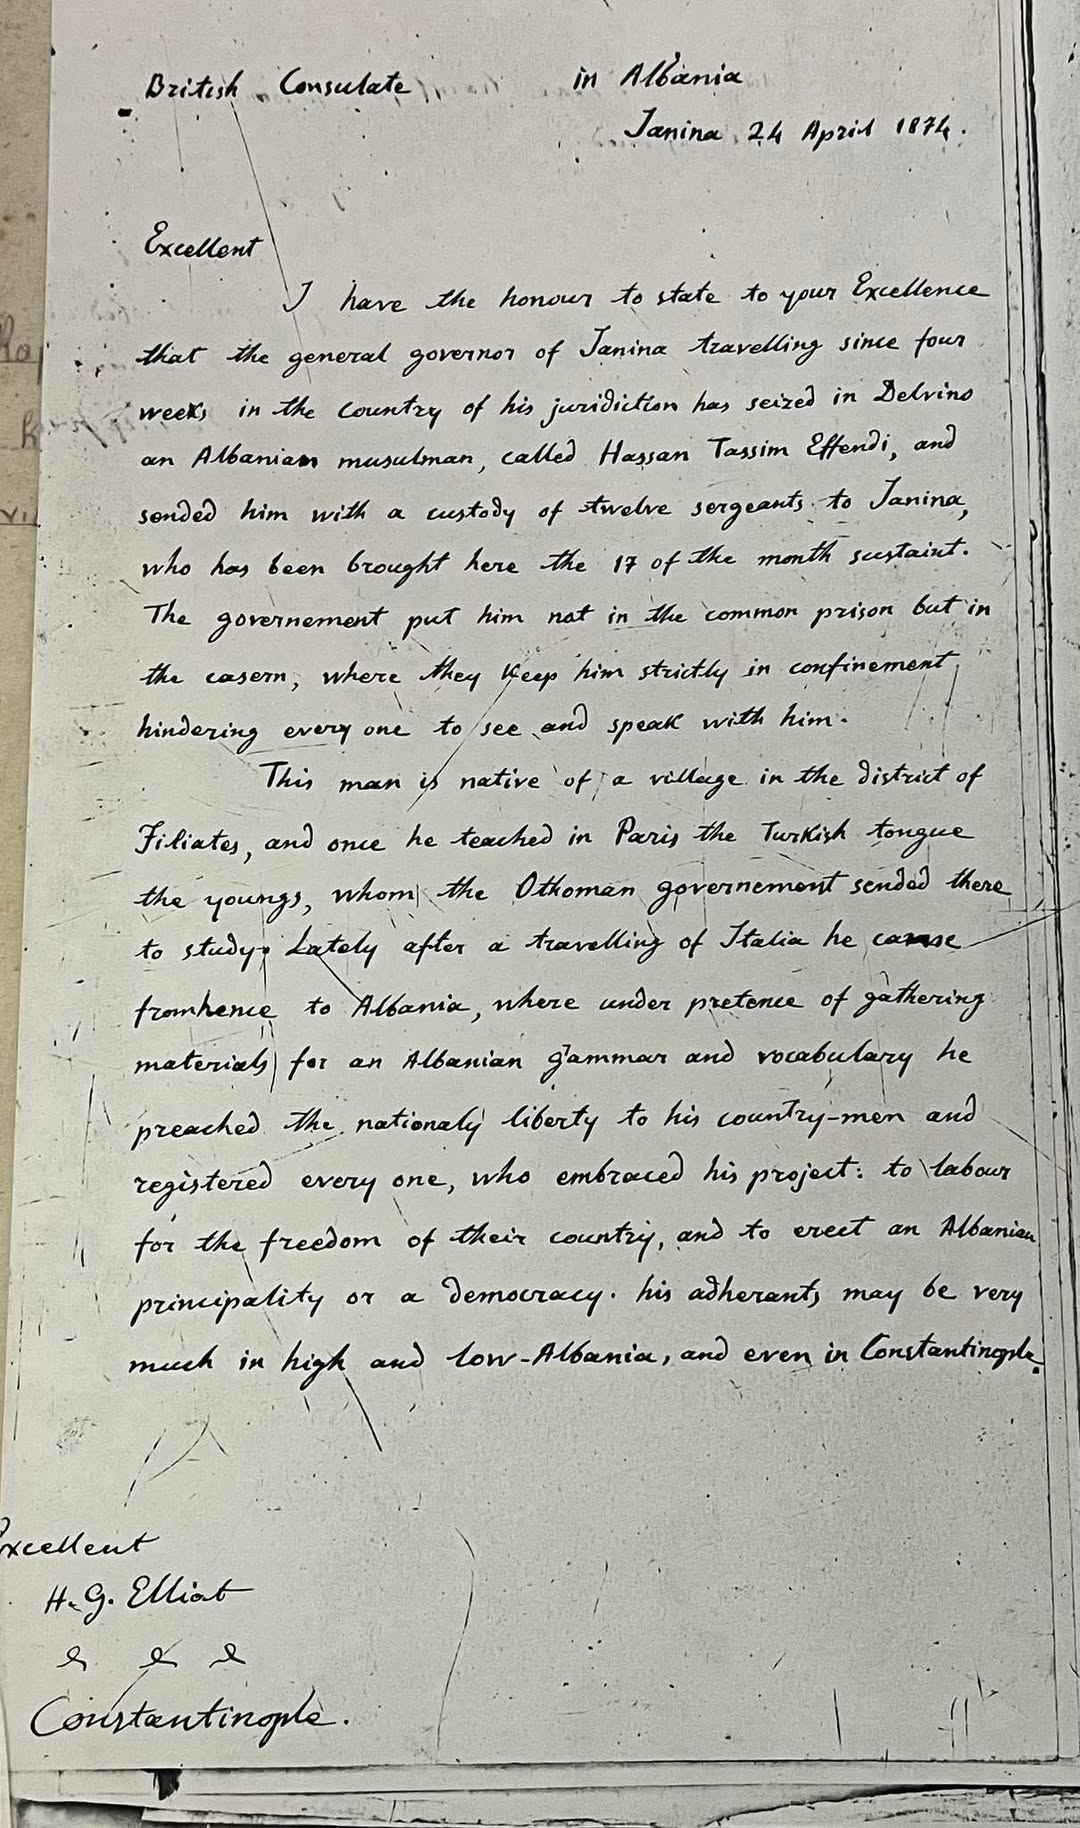 British Consulate in Albania
Janina 24 April 1874.
Excellent
I have the honour to state to your Excellence
that the general governor of Janina travelling since four
weeks in the country of his juridiction has seized in Delvino
an Albanian musulman, called Hassan Tassim Effendi, and
sended him with a custody of twelve sergeants to Janina,
who has been brought here the 17 of the month sustaint.
The governement put him not in the common prison but in
the casern, where they keep him strictly in confinement,
hindering every one to see and speak with him.
This man is native of a village in the district of
Filiates, and once he teached in Paris the Turkish tongue
the youngs, whom the Othoman governement sended there
to study. Lately after a travelling of Italia he came
fromhence to Albania, where under pretence of gathering
materials for an Albanian gammar and vocabulary he
preached the nationaly liberty to his country-men and
registered every one, who embraced his project: to labour
for the freedom of their country, and to erect an Albanian
principality or a democracy. his adherants may be very
much in high and low-Albania, and even in Constantinople.
Excellent
H. G. Elliot
& & &
Constantinople.